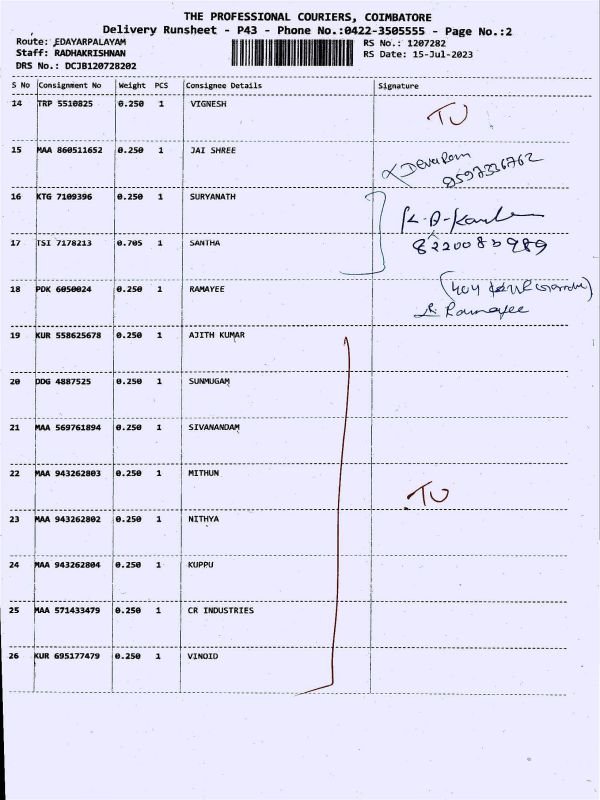 THE PROFESSIONAL COURIERS, COIMBATORE
Delivery Runsheet - P43 - Phone No.:0422-3505555 - Page No.:2
Route: EDAYARPALAYAM RS No.: 1207282
Staff: RADHAKRISHNAN RS Date: 15-Jul-2023
DRS No.: DCJB120728202
S No Consignment No Weight PCS Consignee Details Signature
14 TRP 5510825 0.250 1 VIGNESH TU
15 MAA 860511652 0.250 1 JAI SHREE Devaram
8597336762
16 KTG 7109396 0.250 1 SURYANATH
17 TSI 7178213 0.705 1 SANTHA
18 PDK 6050024 0.250 1 RAMAYEE
Ramayee
19 KUR 558625678 0.250 1 AJITH KUMAR
20 DDG 4887525 0.250 1 SUNMUGAM
21 MAA 569761894 0.250 1 SIVANANDAM
22 MAA 943262803 0.250 1 MITHUN TU
23 MAA 943262802 0.250 1 NITHYA
24 MAA 943262804 0.250 1 KUPPU
25 MAA 571433479 0.250 1 CR INDUSTRIES
26 KUR 695177479 0.250 1 VINOID